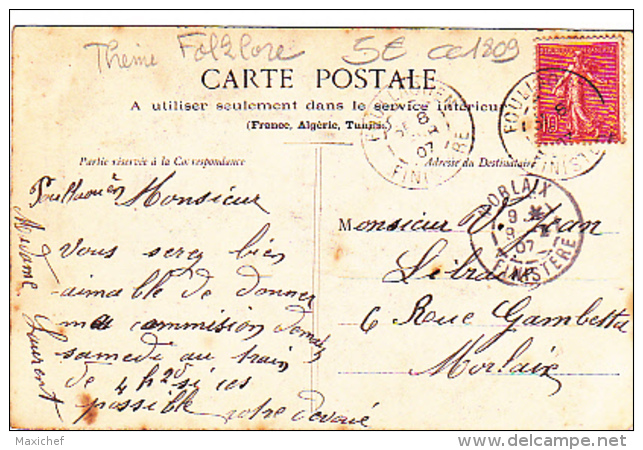 Thème Folklore 5€ cc1809
CARTE POSTALE
A utiliser seulement dans le service intérieur
(France, Algérie, Tunisie)
Partie réservée à la Correspondance
Adresse du Destinataire
FINISTÈRE
07
FINISTÈRE
MORLAIX
07
FINISTÈRE
10
Poullaouën Monsieur
Vous serez bien
aimable de donner
ma commision demain
samedi au train
de 4h20 si ces
possible votre dévoué
Madame Laurent
Monsieur V. Jean
Libraire
6 Rue Gambetta
Morlaix
Maxichef
www.delcampe.net